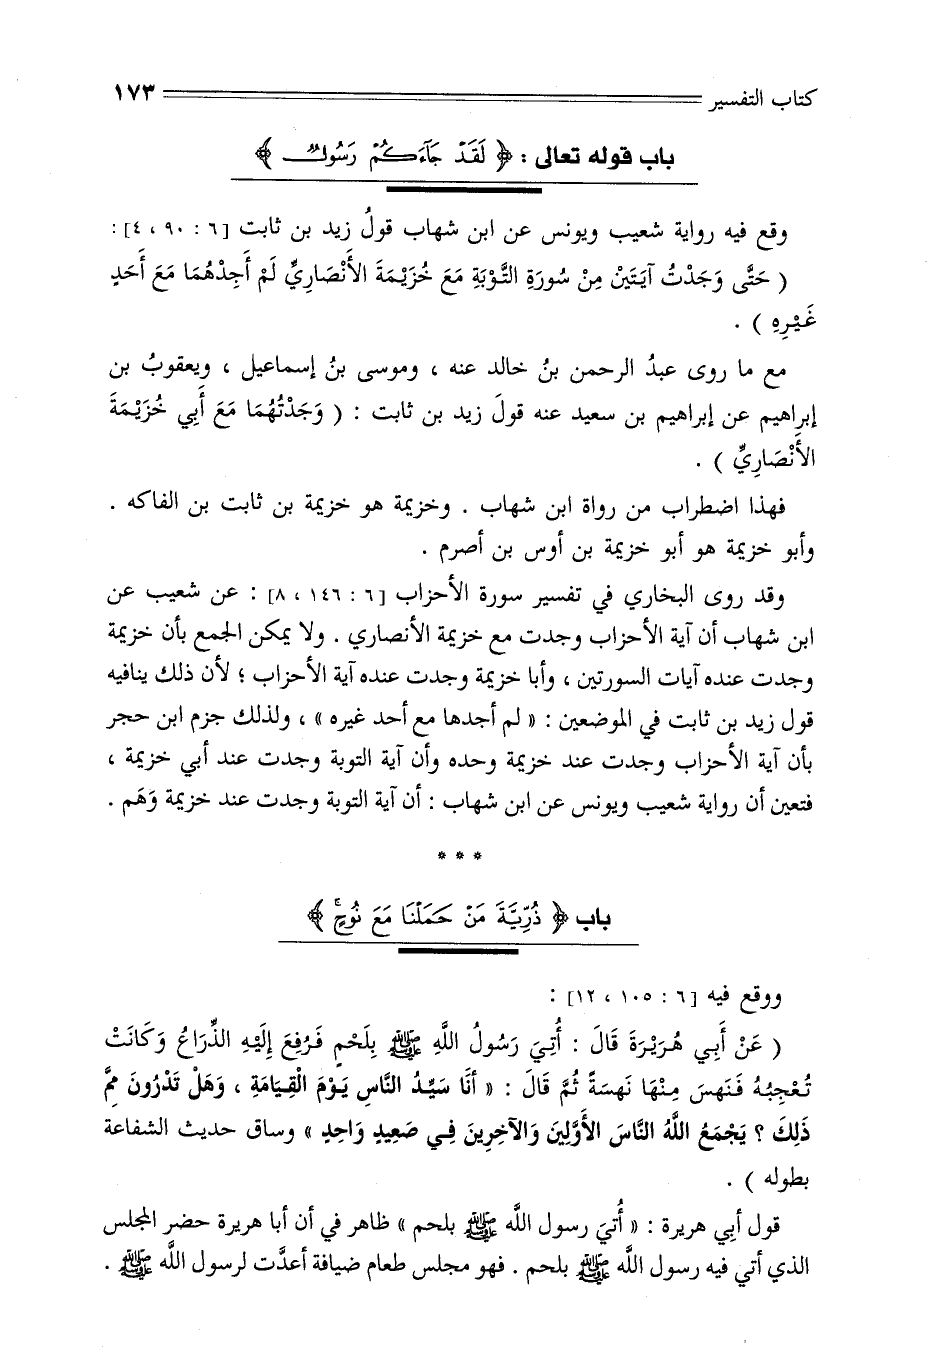 كتاب التفسير ١٧٣
باب قوله تعالى : ﴿ لَقَدْ جَآءَكُمْ رَسُولٌ ﴾
وقع فيه رواية شعيب ويونس عن ابن شهاب قولُ زيد بن ثابت [٦ : ٩٠ ، ٤] :
( حَتَّى وَجَدْتُ آيَتَيْنِ مِنْ سُورَةِ التَّوْبَةِ مَعَ خُزَيْمَةَ الأَنْصَارِيِّ لَمْ أَجِدْهُمَا مَعَ أَحَدٍ
غَيْرِهِ ) .
مع ما روى عبدُ الرحمن بنُ خالد عنه ، وموسى بنُ إسماعيل ، ويعقوبُ بن
إبراهيم عن إبراهيم بن سعيد عنه قولَ زيد بن ثابت : ( وَجَدْتُهُمَا مَعَ أَبِي خُزَيْمَةَ
الأَنْصَارِيِّ ) .
فهذا اضطراب من رواة ابن شهاب . وخزيمة هو خزيمة بن ثابت بن الفاكه .
وأبو خزيمة هو أبو خزيمة بن أوس بن أصرم .
وقد روى البخاري في تفسير سورة الأحزاب [٦ : ١٤٦ ، ٨] : عن شعيب عن
ابن شهاب أن آية الأحزاب وجدت مع خزيمة الأنصاري . ولا يمكن الجمع بأن خزيمة
وجدت عنده آيات السورتين ، وأبا خزيمة وجدت عنده آية الأحزاب ؛ لأن ذلك ينافيه
قول زيد بن ثابت في الموضعين : « لم أجدها مع أحد غيره » ، ولذلك جزم ابن حجر
بأن آية الأحزاب وجدت عند خزيمة وحده وأن آية التوبة وجدت عند أبي خزيمة ،
فتعين أن رواية شعيب ويونس عن ابن شهاب : أن آية التوبة وجدت عند خزيمة وَهَم .
* * *
باب ﴿ ذُرِّيَّةَ مَنْ حَمَلْنَا مَعَ نُوحٍ ﴾
ووقع فيه [٦ : ١٠٥ ، ١٢] :
( عَنْ أَبِي هُرَيْرَةَ قَالَ : أُتِيَ رَسُولُ اللَّهِ ﷺ بِلَحْمٍ فَرُفِعَ إِلَيْهِ الذِّرَاعُ وَكَانَتْ
تُعْجِبُهُ فَنَهِسَ مِنْهَا نَهسَةً ثُمَّ قَالَ : « أنَا سَيِّدُ النَّاسِ يَوْمَ الْقِيَامَةِ ، وَهَلْ تَدْرُونَ مِمَّ
ذَلِكَ ؟ يَجْمَعُ اللَّهُ النَّاسَ الأَوَّلِينَ وَالآخِرِينَ فِي صَعِيدٍ وَاحِدٍ » وساق حديث الشفاعة
بطوله ) .
قول أبي هريرة : « أُتيَ رسول اللَّه ﷺ بلحم » ظاهر في أن أبا هريرة حضر المجلس
الذي أتي فيه رسول اللَّه ﷺ بلحم . فهو مجلس طعام ضيافة أعدَّت لرسول اللَّه ﷺ .